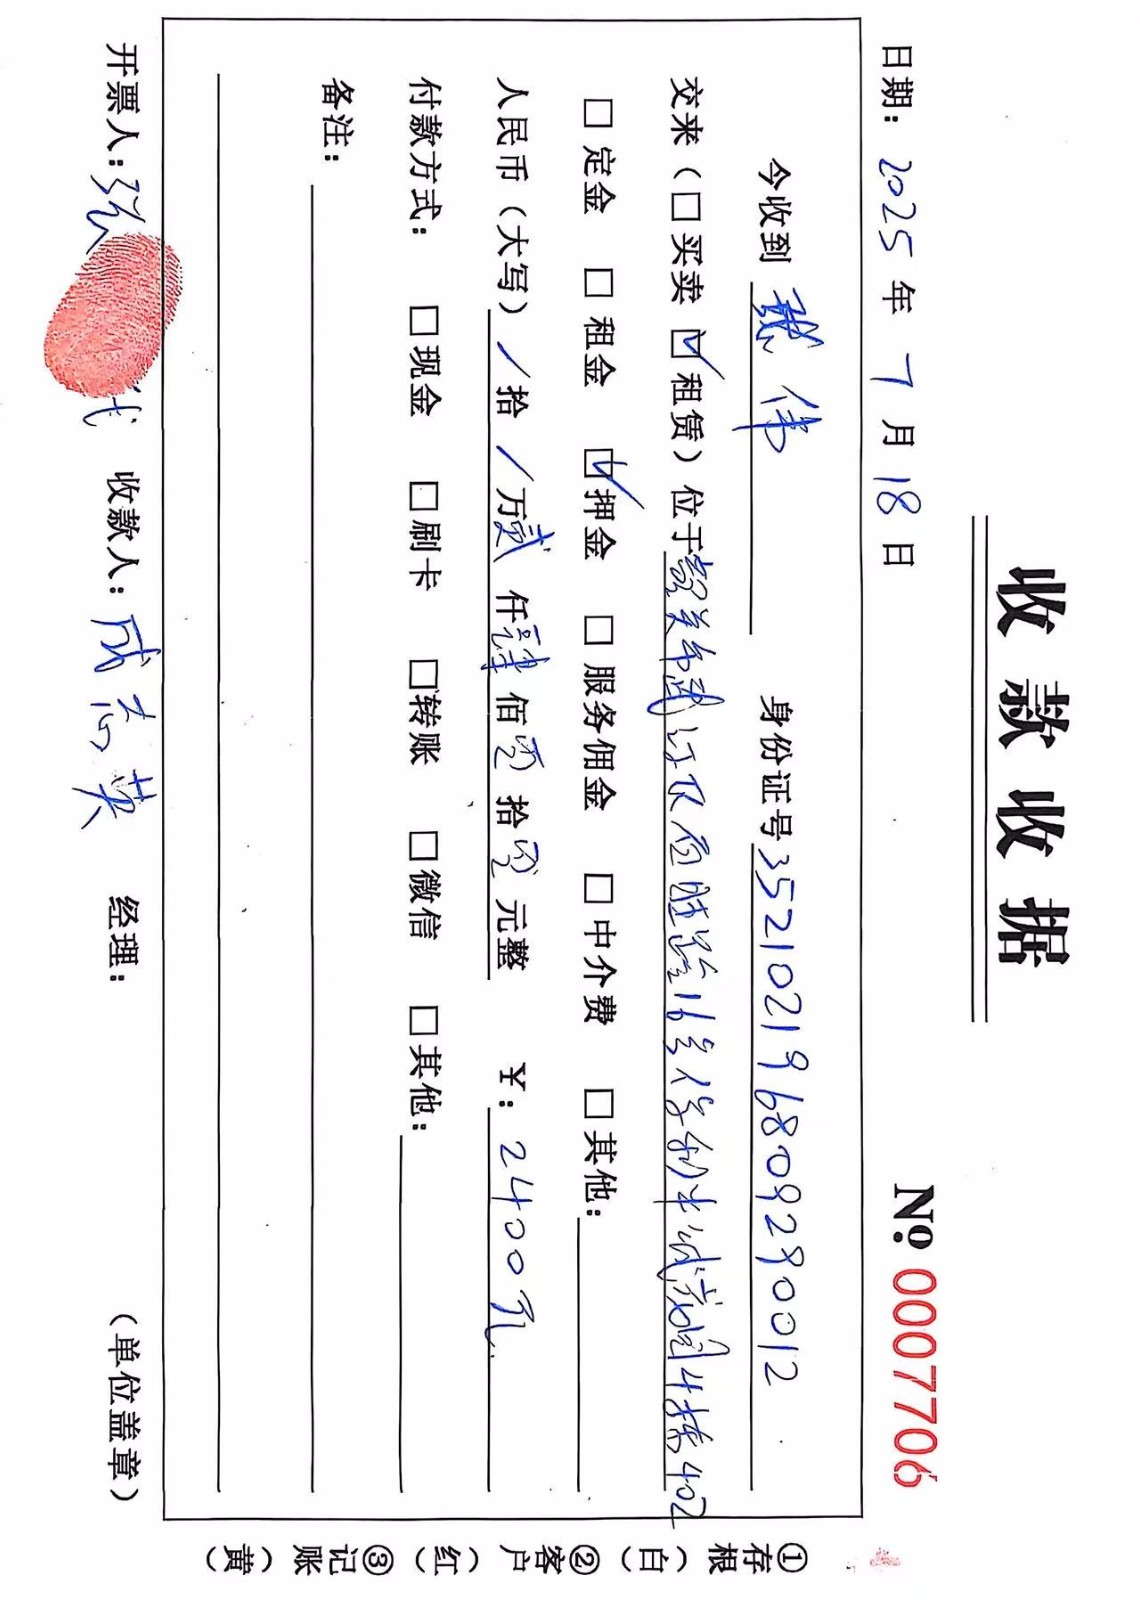 收款收据
日期：2025年7月18日 № 0007706
今收到 张伟 身份证号 352102196809290012
交来（□买卖 ☑租赁）位于韶关市武江区 16号 4栋402
□定金 □租金 ☑押金 □服务佣金 □中介费 □其他：
人民币（大写）/拾/万贰仟肆佰零拾零元整 ¥：2400元
付款方式： □现金 □刷卡 □转账 □微信 □其他：
备注：
开票人：张 收款人：成志英 经理： （单位盖章）
①存根（白）②客户（红）③记账（黄）